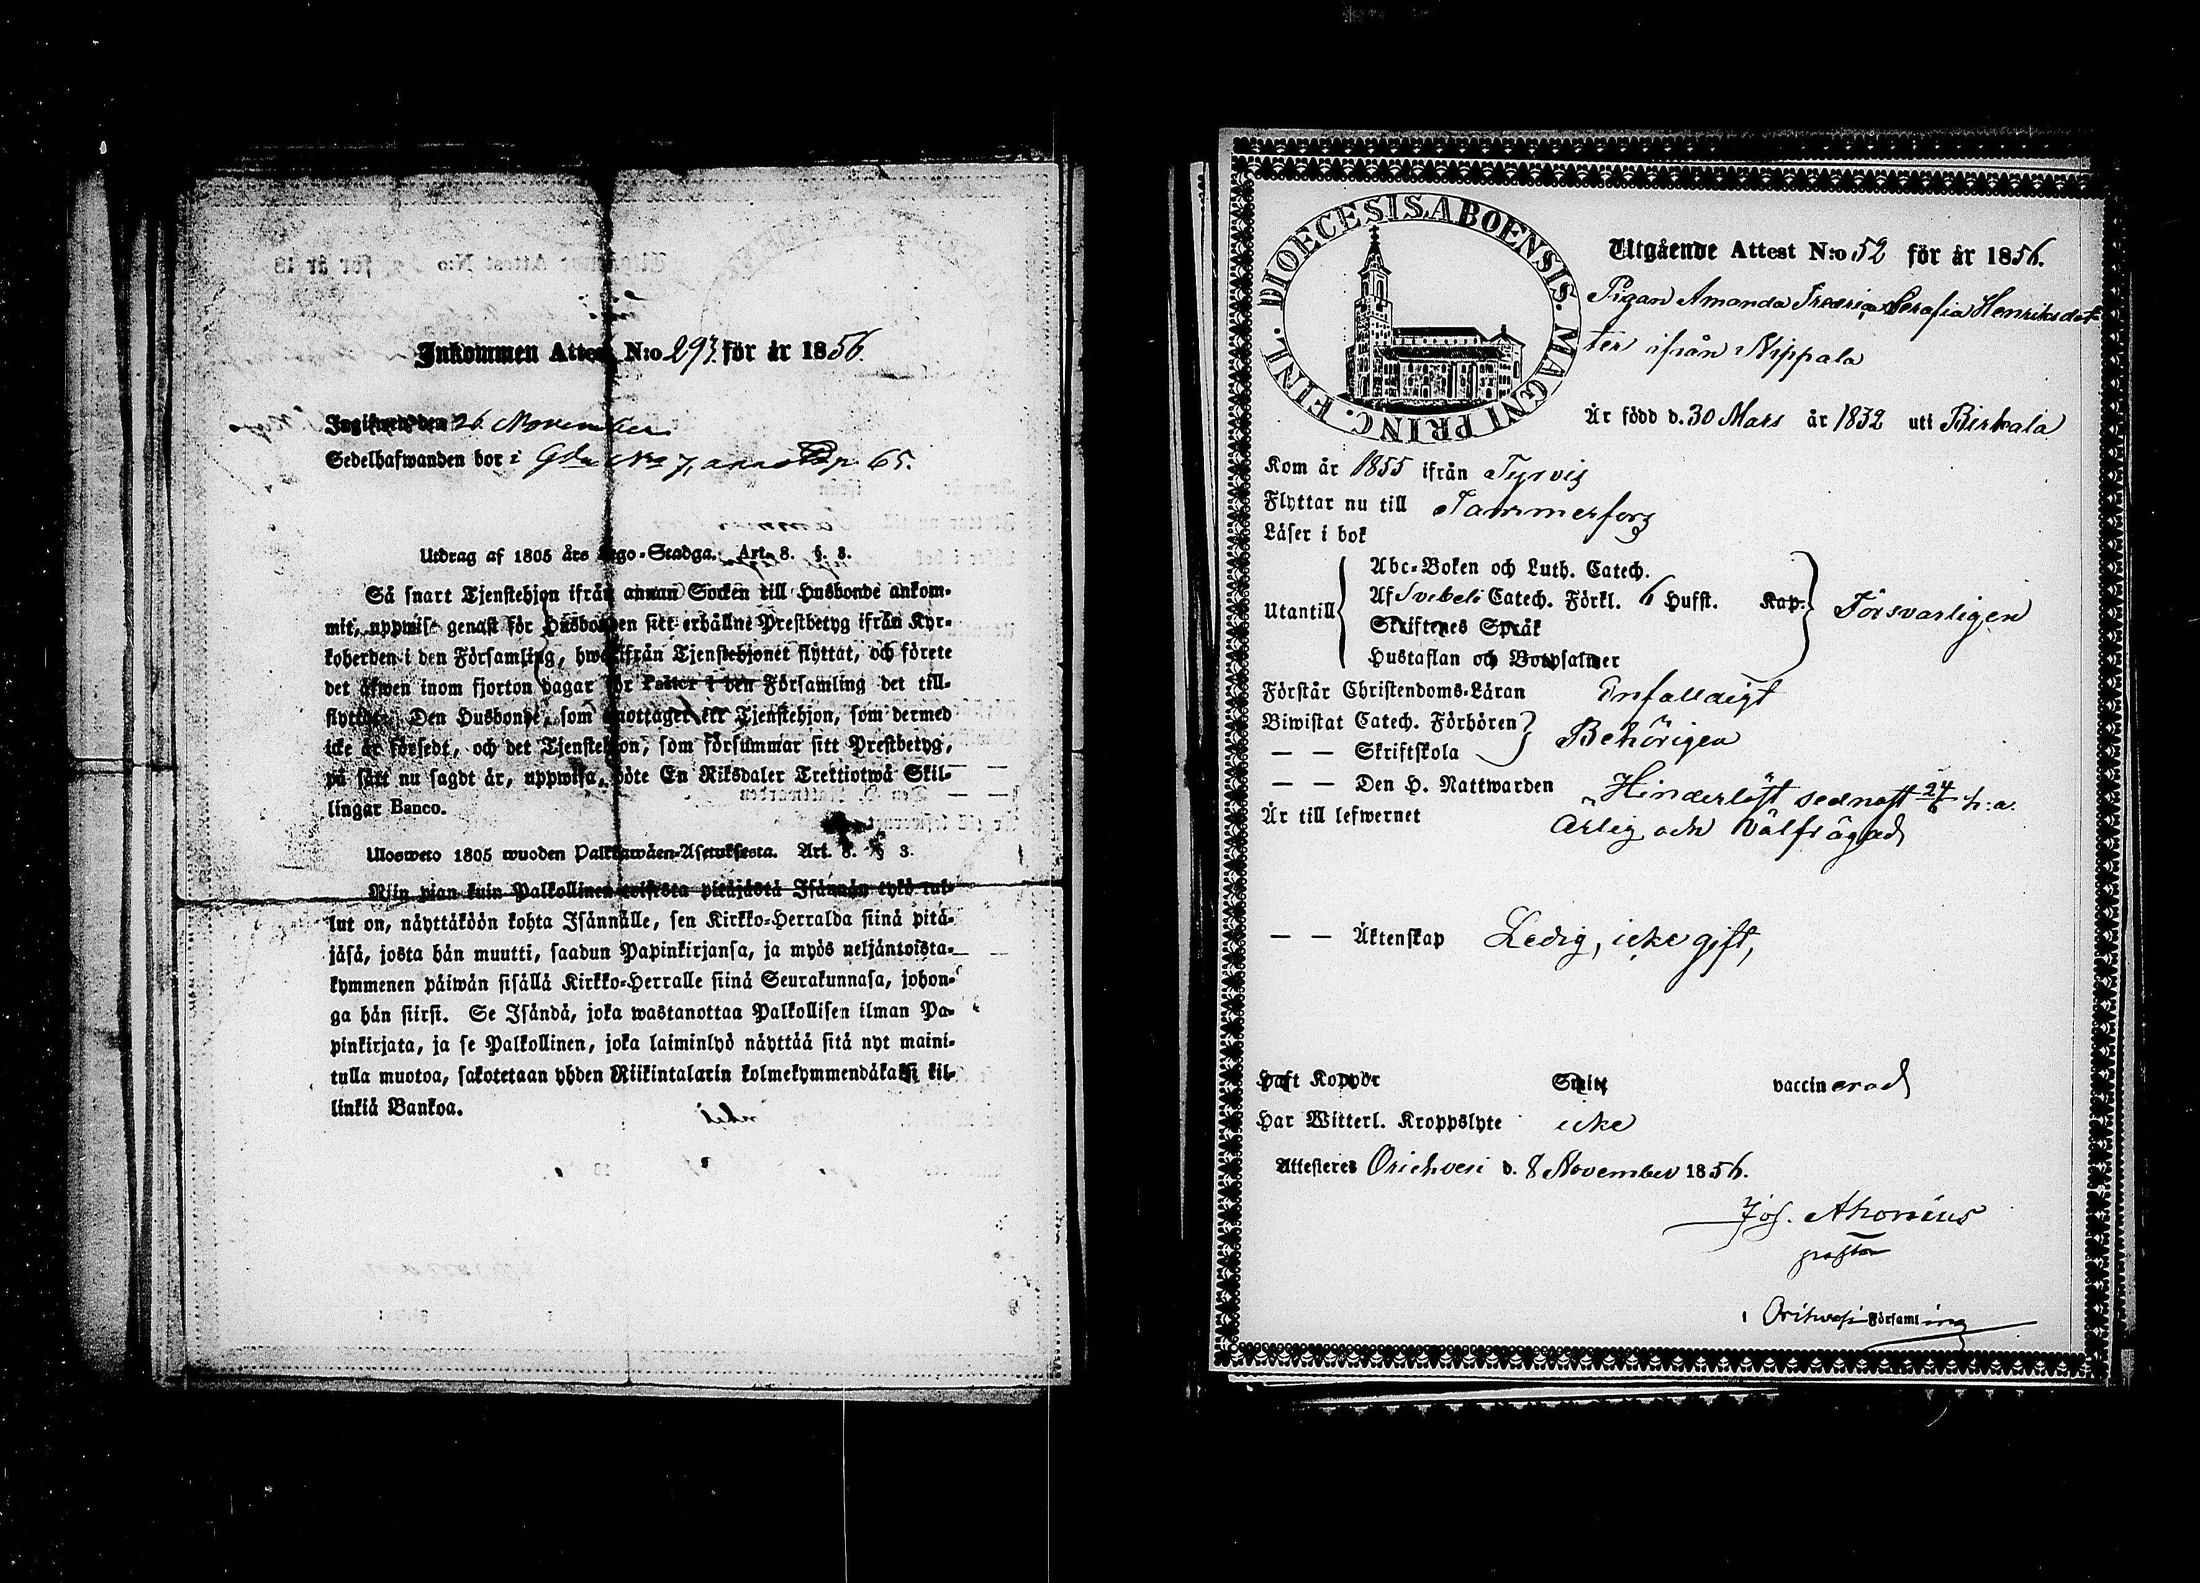 Inkommen Attest N:o 293. för år 1856
Ingifwen den 26 November
Sedelhafwanden bor i Gdn No 7, p. 65.
Utdrag af 1805 års Lego-Stadga. Art. 8. §. 3.
Så snart Tjenstehjon ifrån annan Socken till Husbonde ankom-
mit, uppwise genast för Husbonden sitt erhållne Prestbetyg ifrån Kyr-
koherden i den Församling, hwarifrån Tjenstehjonet flyttat, och förete
det äfwen inom fjorton dagar för Pastor i den Församling det till-
flyttat. Den Husbonde, som emottager ett Tjenstehjon, som dermed
icke är försedt, och det Tjenstehjon, som försummar sitt Prestbetyg,
på sätt nu sagdt är, uppwisa, böte En Riksdaler Trettiotwå Skil-
lingar Banco.
Ulosweto 1805 wuoden Palkkawäen-Asetuksesta. Art. 8. § 3.
Niin pian kuin Palkollinen toisesta pitäjästä Isännän tykö tul-
lut on, näyttäköön kohta Isännälle, sen Kirkko-Herralda siinä pitä-
jäsä, josta hän muutti, saadun Papinkirjansa, ja myös neljäntoista-
kymmenen päiwän sisällä Kirkko-Herralle siinä Seurakunnasa, johon-
ga hän siirsi. Se Isändä, joka wastanottaa Palkollisen ilman Pa-
pinkirjata, ja se Palkollinen, joka laiminlyö näyttää sitä nyt maini-
tulla muotoa, sakotetaan yhden Riikintalarin kolmekymmendäkaksi kil-
linkiä Bankoa.
DIOECESIS ABOENSIS. MAGNI PRINC. FINL.
Utgående Attest N:o 52 för år 1856.
Pigan Amanda Fredrica Serafia Henriksdot
ter ifrån Hippala
Är född d. 30 Mars år 1832 uti Birkala
Kom år 1855 ifrån Tyrvis
Flyttar nu till Tammerfors
Läser i bok
Utantill
Abc-Boken och Luth. Catech.
Af Svebeli Catech. Förkl. 6 Hufst. Kap.
Skriftenes Språk
Hustaflan och Botpsalmer
Försvarligen
Förstår Christendoms-Läran Enfalldigt
Biwistat Catech. Förhören
— — Skriftskola
Behörigen
— — Den H. Nattwarden Hinderlöst sednast 24/6 h: a.
Är till lefwernet Ärlig och Välfrägdad
— — Äktenskap Ledig, icke gift,
Haft Koppor Smitt vaccinerad
Har Witterl. Kroppslyte icke
Attesteres Orichvesi d. 8 November 1856.
Jos. Ahonius
pastor
i Orihvesi Församling